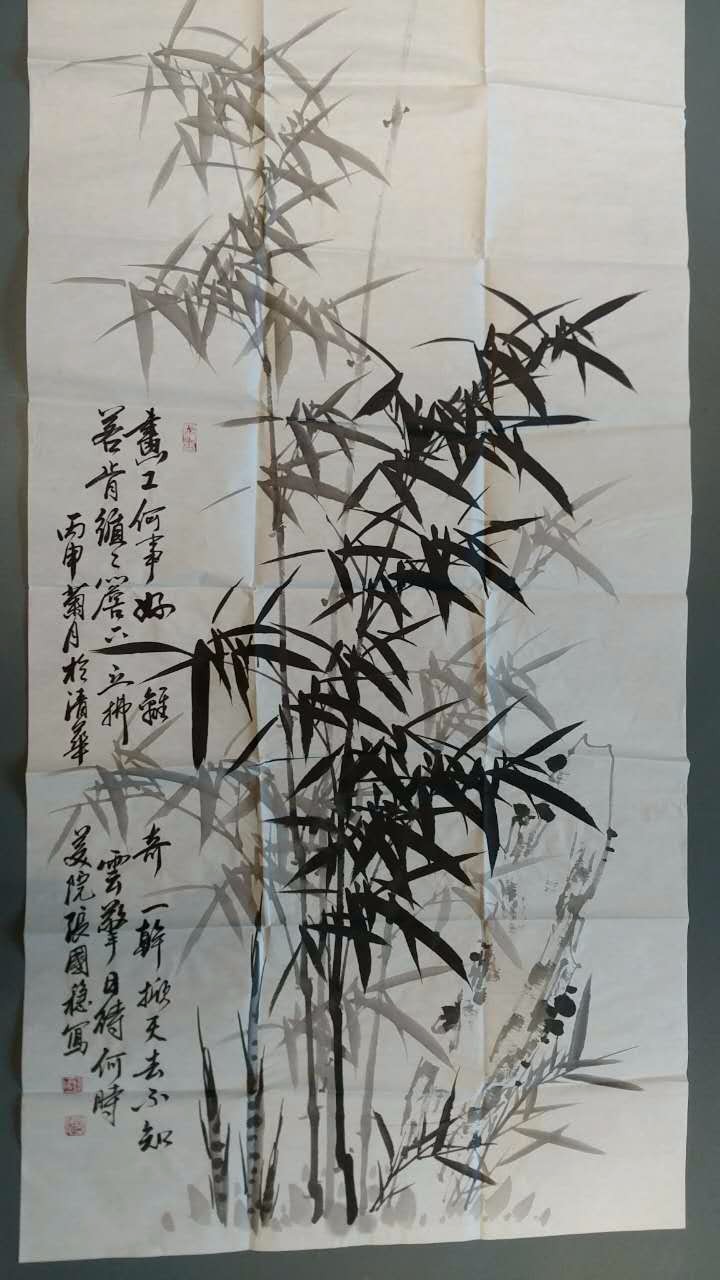 畫工何事好離奇一幹掀天去不知
若肯循々簷下立拂雲擎日待何時
丙申菊月於清華美院張國穩寫